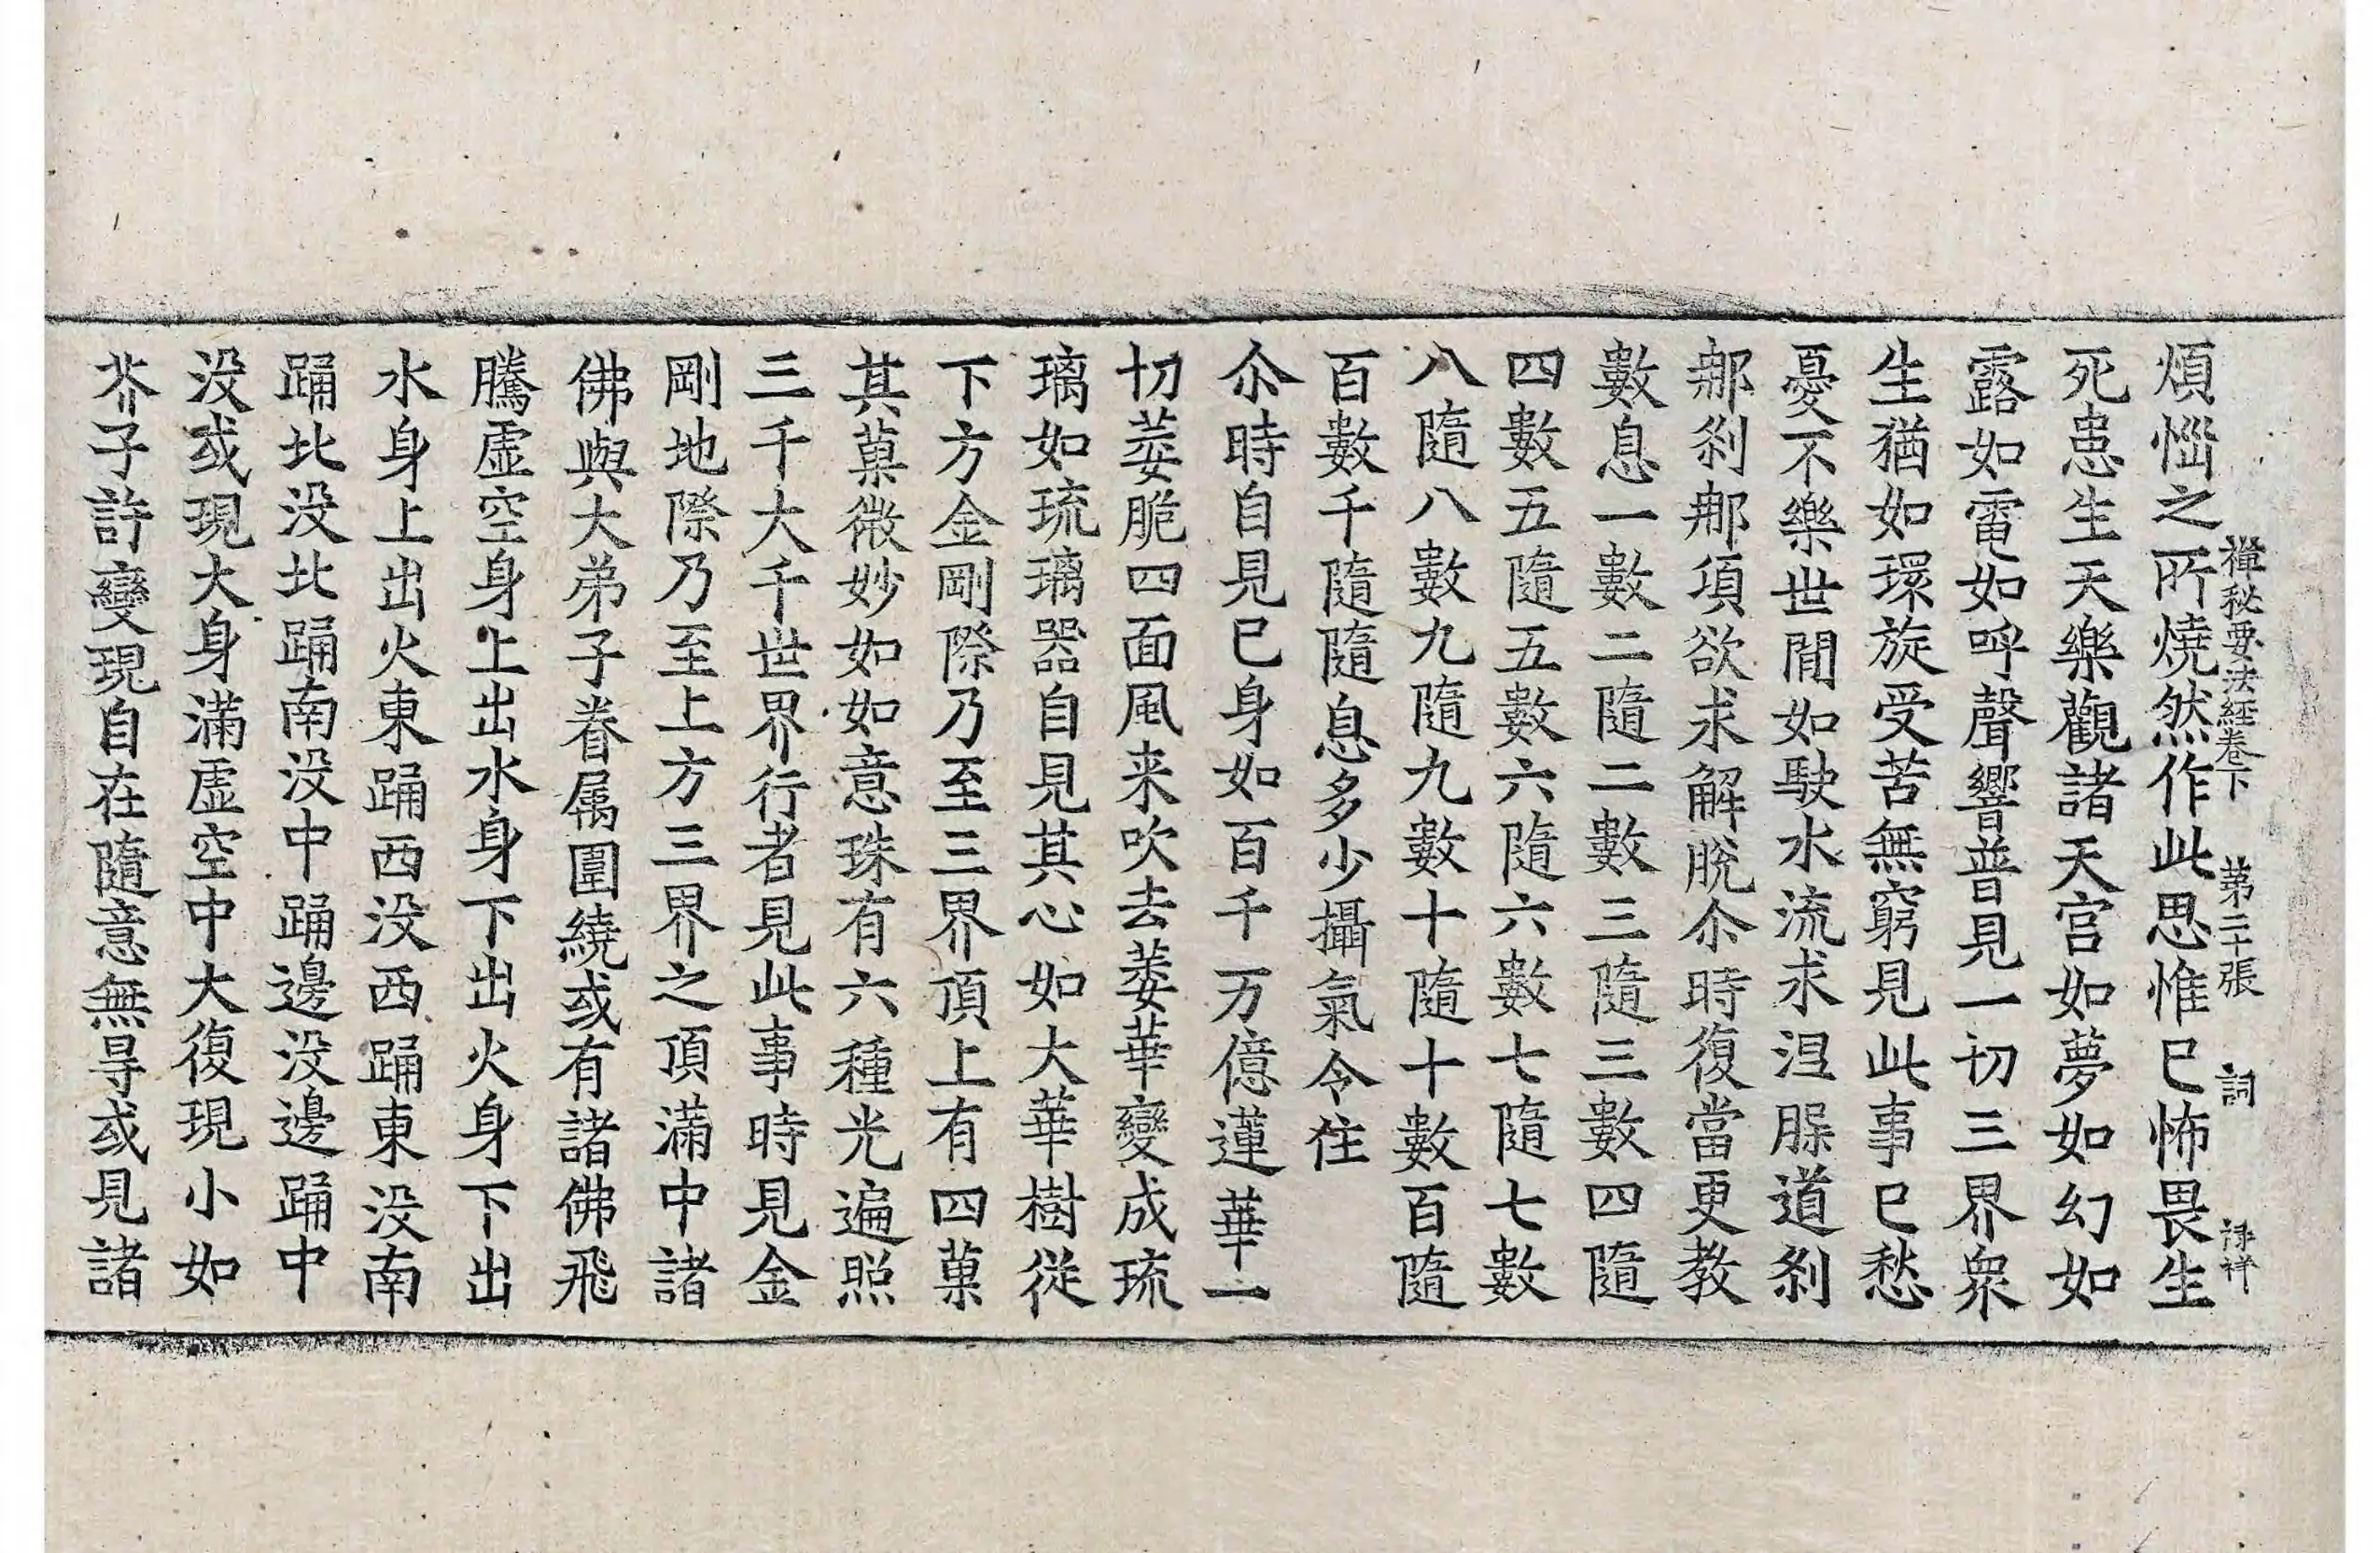 禪秘要法經卷下　第二十張　詞　祿祥
煩惱之所燒然作此思惟已怖畏生
死患生天樂觀諸天宮如夢如幻如
露如電如呼聲響普見一切三界衆
生猶如環旋受苦無窮見此事已愁
憂不樂世間如駛水流求涅槃道刹
那刹那項欲求解脫尒時復當更教
數息一數二隨二數三隨三數四隨
四數五隨五數六隨六數七隨七數
八隨八數九隨九數十隨十數百隨
百數千隨隨息多少攝氣令住
尒時自見已身如百千万億蓮華一
切萎脆四面風来吹去萎華變成琉
璃如琉璃器自見其心如大華樹從
下方金剛際乃至三界頂上有四菓
其菓微妙如如意珠有六種光遍照
三千大千世界行者見此事時見金
剛地際乃至上方三界之頂滿中諸
佛與大弟子眷属圍繞或有諸佛飛
騰虛空身上出水身下出火身下出
水身上出火東踊西没西踊東没南
踊北没北踊南没中踊邊没邊踊中
没或現大身滿虛空中大復現小如
芥子許變現自在隨意無㝵或見諸